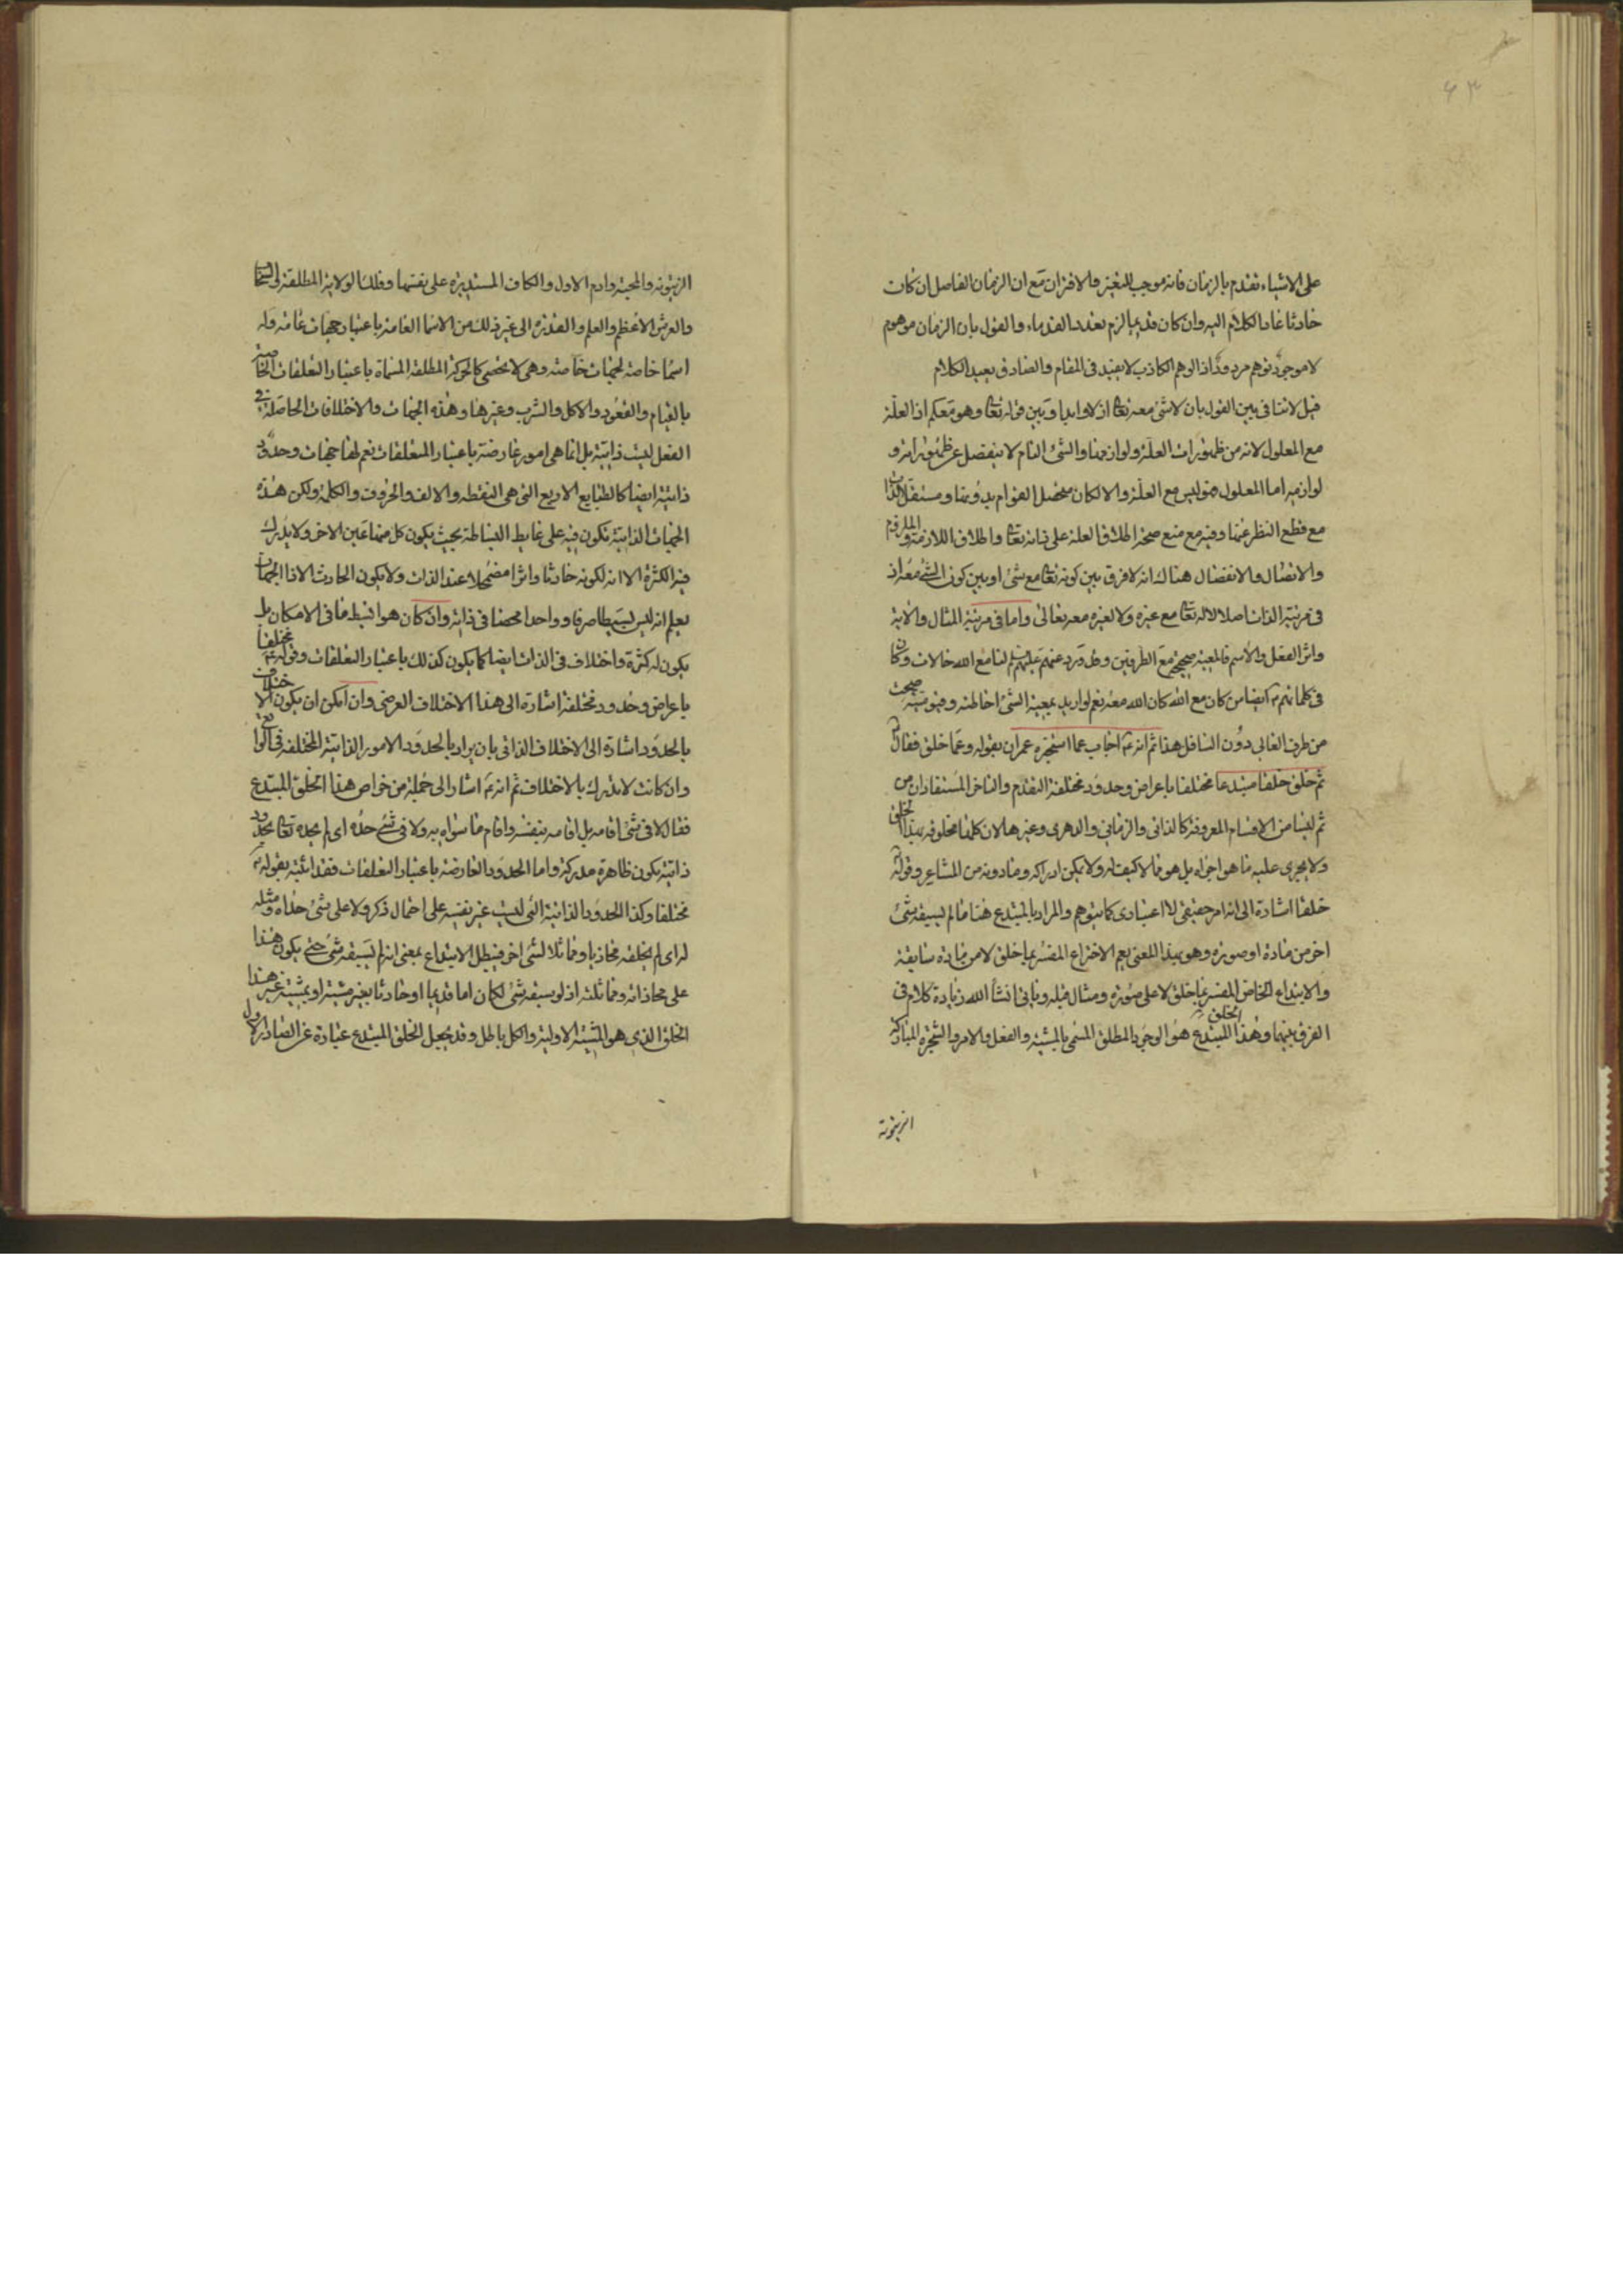 ۶۳
على الاشياء تقدم بالزمان فانه موجب للتغير والاقتران مع ان الزمان الفاصل ان كان
حادثا عاد الكلام اليه وان كان قديما لزم تعدد القدماء والقول بان الزمان موهوم
لا موجود توهم مردود اذ الوهم الكاذب لا يفيد فى المقام والصادق يعيد الكلام
قيل لا تنافى بين القول بان لا شئ معه تعالى ازلا وابدا وبين قوله تعالى وهو معكم اذ العلة
مع المعلول لانه من ظهورات العلة ولوازمها والشئ التام لا ينفصل عن ظهوراته و
لوازمه اما المعلول فهو ليس مع العلة والا لكان متحصل القوام بدونها ومستقل الذات
مع قطع النظر عنها وفيه مع منع صحة اطلاق العلة على ذاته تعالى واطلاق اللازم والملزوم
والاتصال والانفصال هناك انه لا فرق بين كونه تعالى مع شئ او بين كون الشئ معه اذ
فى مرتبة الذات اصلا لا له تعالى مع غيره ولا لغيره معه تعالى واما فى مرتبة المثال والاية
واثر الفعل والاسم فالمعية صحيحة مع الطرفين وقد ورد عنهم عليهم السلام لنا مع الله حالات وكان
فى كلماتهم ايضا من كان مع الله كان الله معه نعم لو اريد بمعية الشئ احاطته وقيوميته صحت
من طرف العالى دون السافل هذا ثم انه ع اجاب عما استخبره عمران بقوله وعما خلق فقال
ثم خلق خلقا مبتدعا مختلفا باعراض وحدود مختلفة التقدم والتاخر المستفادان من
ثم ليسا من الاقسام المعروفة كالذاتى والزمانى والدهرى وغيرها لان كلها مخلوقة بهذا الخلق
ولا يجرى عليه ما هو اجراه بل هو مما لا كيف له ولا يمكن ادراكه وما دونه من المشاعر وقوله
خلقا اشارة الى انه امر حقيقى لا اعتبارى كما يتوهم والمراد بالمبتدع هنا ما لم يسبقه شئ
اخر من مادة او صورة وهو بهذا المعنى يعم الاختراع المفسر بما خلق لا من مادة سابقة
والابتداع الخاص المفسر بما خلق لا على صورة ومثال قبله وياتى انشأ الله زيادة كلام فى
الفرق بينهما وهذا الخلق المبتدع هو الوجود المطلق المسمى بالمشية والفعل والامر والشجرة المباركة
الزيتونة
الزيتونة والمحبة وادم الاول والكاف المستديرة على نفسها وفلك الولاية المطلقة
والعرش الاعظم والعلم والقدرة الى غير ذلك من الاسما العامة باعتبار جهات عامة وله
اسما خاصة لجهات خاصة وهى لا تحصى كالحركة المطلقة المسماة باعتبار التعلقات الخاصة
بالقيام والقعود والاكل والشرب وغيرها وهذه الجهات والاختلافات الحاصلة فى
الفعل ليست ذاتية بل انما هى امور عارضة باعتبار المتعلقات نعم لها جهات وحدود
ذاتية ايضا كالطبايع الاربع التى هى النقطة والالف والحروف والكلمة ولكن هذه
الجهات الذاتية تكون فيه على غاية البساطة بحيث يكون كل منها عين الاخر ولا يدرك
فيه الكثرة الا انه لكونه حادثا واثرا مضمحلا عند الذات ولا يكون الحادث الا ذا الجهات
يعلم انه ليس بسيطا صرفا وواحدا محضا فى ذاته وان كان هو ابسط ما فى الامكان بل
يكون له كثرة واختلاف فى الذات ايضا كما يكون كذلك باعتبار التعلقات وقوله ع مختلفا
باعراض وحدود مختلفة اشارة الى هذا الاختلاف العرضى وان امكن ان يكون الاختلاف
بالحدود اشارة الى الاختلاف الذاتى بان يراد بالحدود الامور الذاتية المختلفة فى الواقع
وان كانت لا تدرك بالاختلاف ثم انه ع اشار الى جملة من خواص هذا الخلق المبتدع
فقال لا فى شئ اقامه بل اقامه بنفسه واقام ما سواه به ولا فى شئ حده اى لم يحده تعالى بحدود
ذاتية يكون ظاهرة مدركة واما الحدود العارضة باعتبار التعلقات فقد اثبته بقوله ع
مختلفا وكذا الحدود الذاتية التى ليست غير نفسه على احتمال ذكر ولا على شئ حذاه ومثله
له اى لم يخلقه محاذيا ومماثلا لشئ اخر فيبطل الابتداع بمعنى انه لم يسبقه شئ حتى يكون هذا
على محاذاته ومماثلته اذ لو سبقه شئ لكان اما قديما او حادثا بغير مشية او بمشية غير هذا
الخلق الذى هو المشية الاولية والكل باطل وقد يجعل الخلق المبتدع عبارة عن الصادر الاول